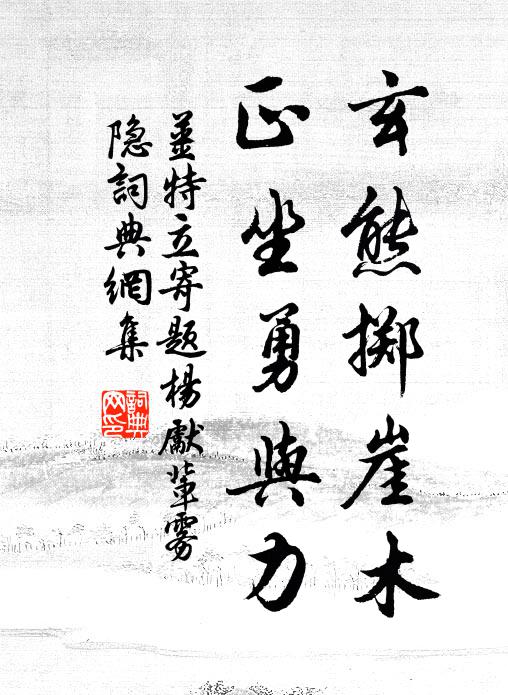 玄熊掷崖木
正坐勇與力
姜特立寄题楊獻輩雾
隐詞典網集
詞典網印